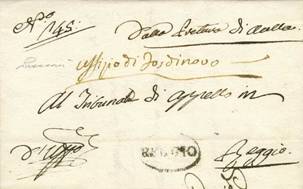 N.º 145.
Dalla Pretura di Aulla.
Uffizio di Fosdinovo
Al Tribunale di Appello in
Reggio.
D'Uffo
REGGIO